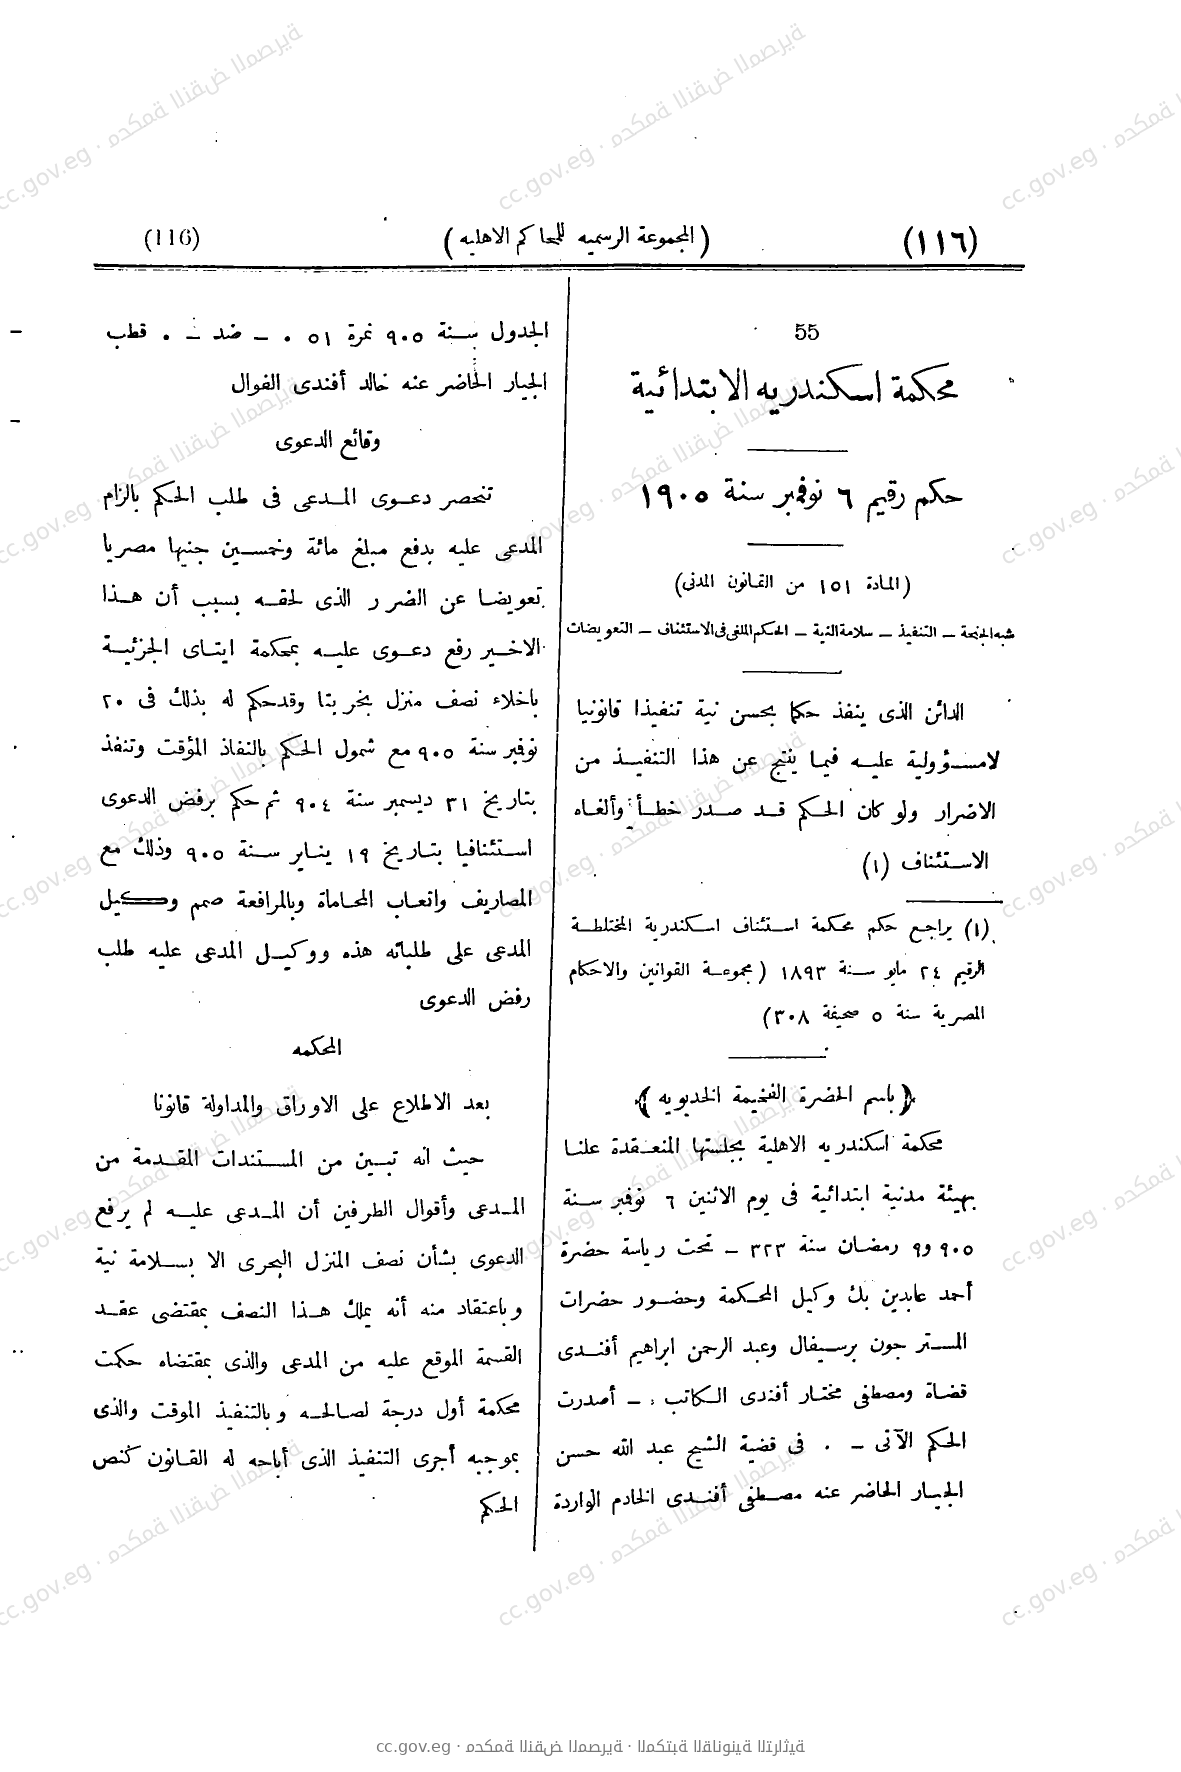 (١١٦)
(المجموعة الرسميه للمحاكم الاهليه)
(116)
55
محكمة اسكندريه الابتدائية
حكم رقيم ٦ نوفمبر سنة ١٩٠٥
(المادة ١٥١ من القانون المدنى)
شبه الجنحة – التنفيذ – سلامة النية – الحكم الملغى فى الاستئناف – التعويضات
الدائن الذى ينفذ حكما بحسن نية تنفيذا قانونيا
لامسؤولية عليه فيما ينتج عن هذا التنفيذ من
الاضرار ولو كان الحكم قد صدر خطأ وألغاه
الاستئناف (١)
(١) يراجع حكم محكمة استئناف اسكندرية المختلطة
الرقيم ٢٤ مايو سنة ١٨٩٣ (مجموعة القوانين والاحكام
المصرية سنة ٥ صحيفة ٣٠٨)
(باسم الحضرة الفخيمة الخديويه)
محكمة اسكندريه الاهلية بجلستها المنعقدة علنا
بهيئة مدنية ابتدائية فى يوم الاثنين ٦ نوفمبر سنة
٩٠٥ و٩ رمضان سنة ٣٢٣ – تحت رياسة حضرة
أحمد عابدين بك وكيل المحكمة وحضور حضرات
المستر جون برسيفال وعبد الرحمن ابراهيم أفندى
قضاة ومصطفى مختار أفندى الكاتب . – أصدرت
الحكم الآتى – . فى قضية الشيخ عبد الله حسن
الجيار الحاضر عنه مصطفى أفندى الخادم الواردة
الجدول سنة ٩٠٥ نمرة ٥١ . – ضد – . قطب
الجيار الحاضر عنه خالد أفندى الفوال
وقائع الدعوى
تنحصر دعوى المدعى فى طلب الحكم بالزام
المدعى عليه بدفع مبلغ مائة وخمسين جنيها مصريا
تعويضا عن الضرر الذى لحقه بسبب أن هذا
الاخير رفع دعوى عليه بمحكمة ايتاى الجزئية
باخلاء نصف منزل بخربتا وقدحكم له بذلك فى ٢٠
نوفمبر سنة ٩٠٥ مع شمول الحكم بالنفاذ المؤقت وتنفذ
بتاريخ ٣١ ديسمبر سنة ٩٠٤ ثم حكم برفض الدعوى
استئنافيا بتاريخ ١٩ يناير سنة ٩٠٥ وذلك مع
المصاريف واتعاب المحاماة وبالمرافعة صمم وكيل
المدعى على طلباته هذه ووكيل المدعى عليه طلب
رفض الدعوى
المحكمه
بعد الاطلاع على الاوراق والمداولة قانونا
حيث انه تبين من المستندات المقدمة من
المدعى وأقوال الطرفين أن المدعى عليه لم يرفع
الدعوى بشأن نصف المنزل البحرى الا بسلامة نية
وباعتقاد منه أنه يملك هذا النصف بمقتضى عقد
القسمة الموقع عليه من المدعى والذى بمقتضاه حكمت
محكمة أول درجة لصالحه وبالتنفيذ الموقت والذى
بموجبه أجرى التنفيذ الذى أباحه له القانون كنص
الحكم
cc.gov.eg · محكمة النقض المصرية · المكتبة القانونية التراثية